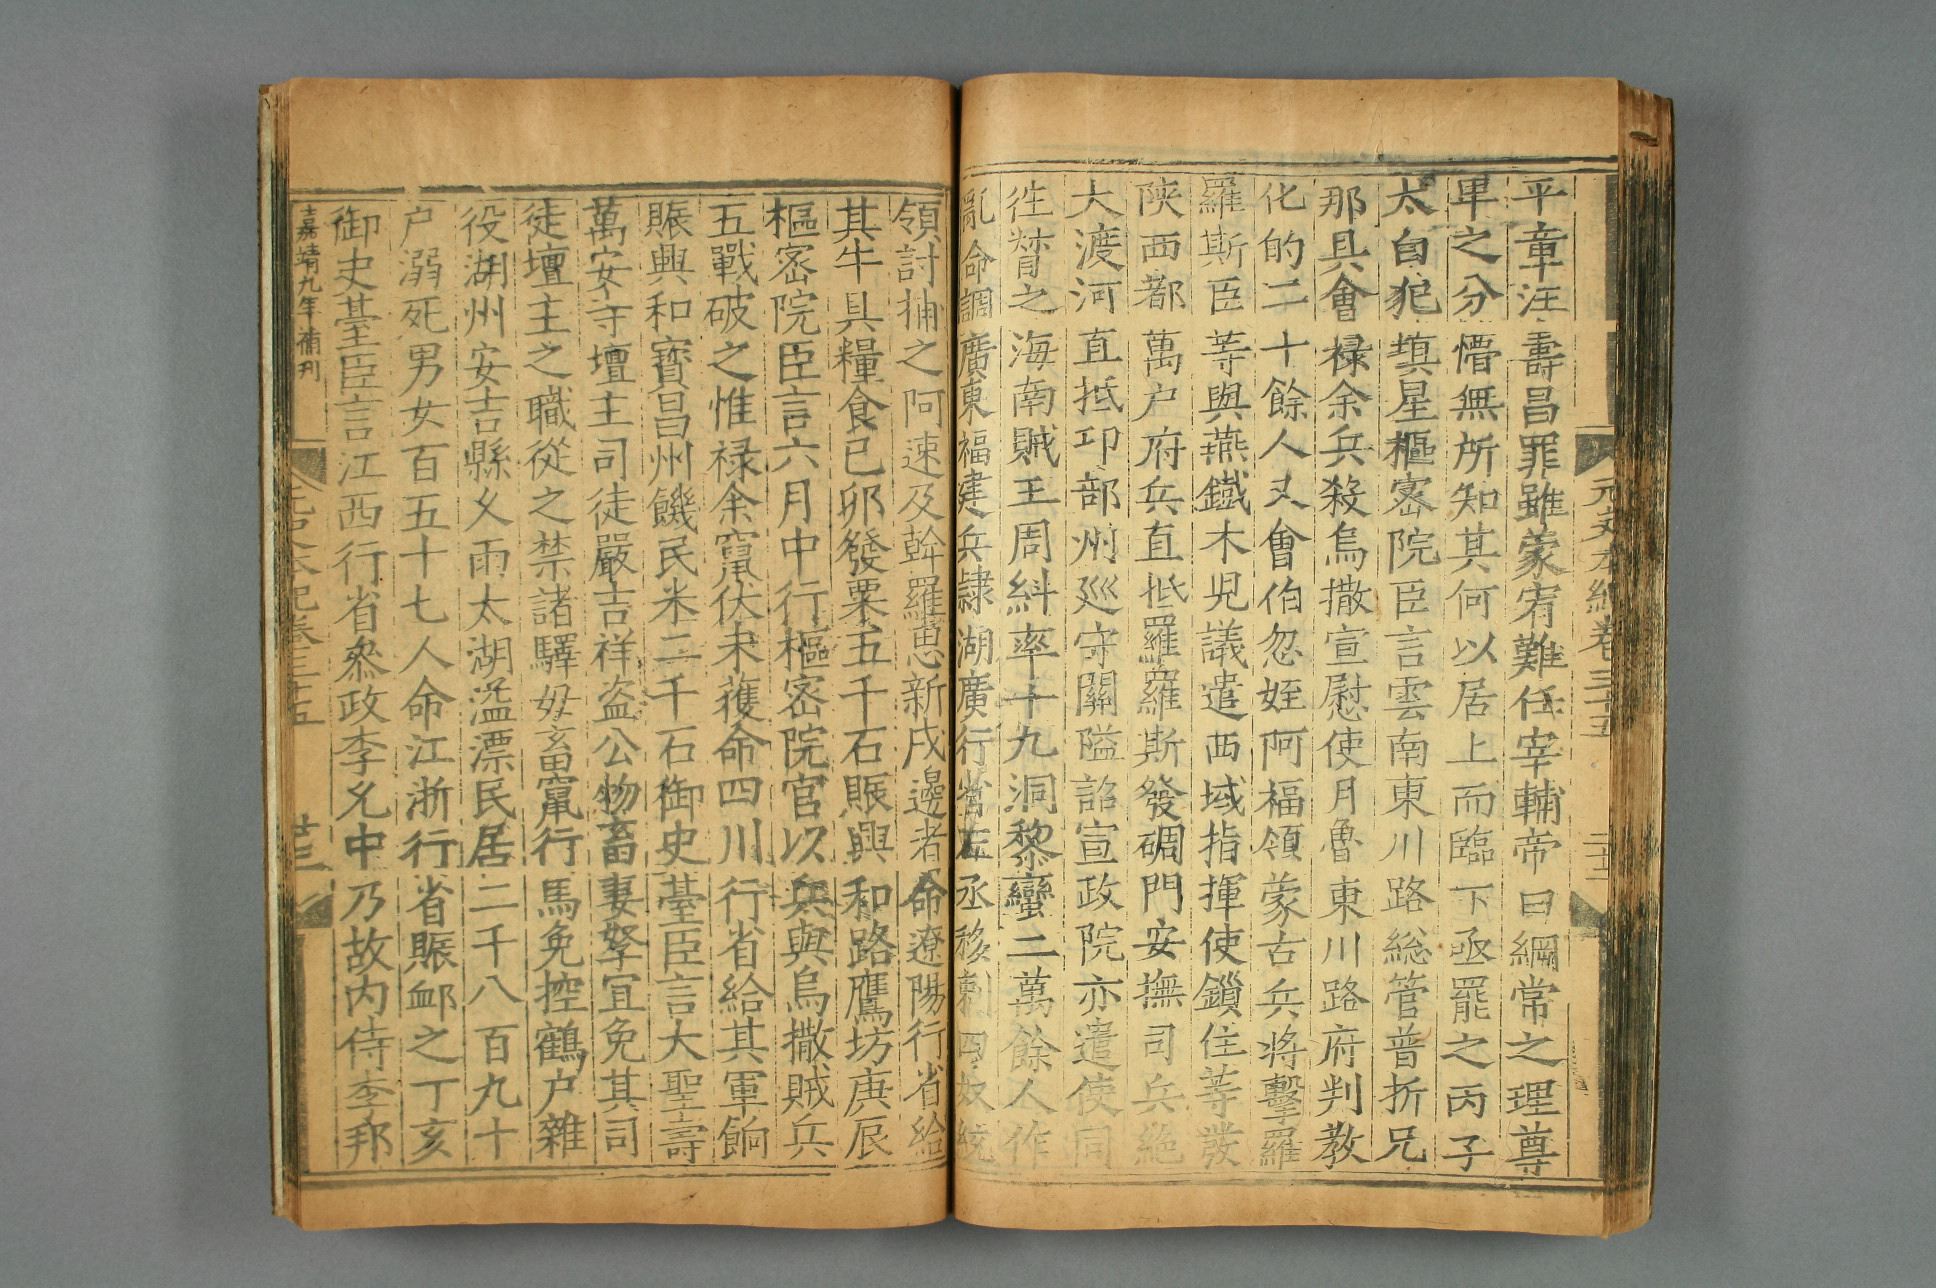 元史本紀卷三十五
平章汪壽昌罪雖蒙宥難任宰輔帝曰綱常之理尊
卑之分懵無所知其何以居上而臨下亟罷之丙子
太白犯塡星樞密院臣言雲南東川路総管普折兄
那具會禄余兵殺烏撒宣慰使月魯東川路府判教
化的二十餘人又會伯忽姪阿福領蒙古兵將擊羅
羅斯臣等與燕鐵木児議遣西域指揮使鎖住等發
陝西都萬户府兵直抵羅羅斯發碉門安撫司兵絶
大渡河直抵邛部州廵守關隘詔宣政院亦遣使同
徃督之海南賊王周糾率十九洞黎蠻二萬餘人作
亂命調廣東福建兵隷湖廣行省左丞移剌四奴統
領討捕之阿速及斡羅思新戍邊者命遼陽行省給
其牛具糧食己卯發粟五千石賑興和路鷹坊庚辰
樞密院臣言六月中行樞密院官以兵與烏撒賊兵
五戰破之惟禄余竄伏未獲命四川行省給其軍餉
賑興和寳昌州饑民米二千石御史臺臣言大聖壽
萬安寺壇主司徒嚴吉祥盗公物畜妻孥宜免其司
徒壇主之職從之禁諸驛毋畜竄行馬免控鶴户雜
役湖州安吉縣乆雨太湖溢漂民居二千八百九十
户溺死男女百五十七人命江浙行省賑䘏之丁亥
御史臺臣言江西行省叅政李允中乃故内侍李邦
嘉靖九年補刋
元史本紀卷三十五
廿三